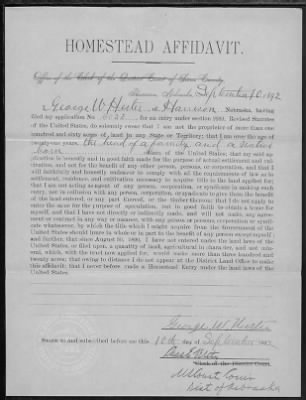 HOMESTEAD AFFIDAVIT.
Office of the Clerk of the District Court of Sioux County,
Harrison Nebraska September 10, 1892
George W Hester of Harrison, Nebraska, having
filed my application No. for an entry under section 2289, Revised Statutes
of the United States, do solemnly swear that I am not the proprietor of more than one
hundred and sixty acres of land in any State or Territory; that I am over the age of
twenty-one years, the head of a family and a native
born citizen of the United States; that my said ap-
plication is honestly and in good faith made for the purpose of actual settlement and cul-
tivation, and not for the benefit of any other person, persons, or corporation, and that I
will faithfully and honestly endeavor to comply with all the requirements of law as to
settlement, residence, and cultivation necessary to acquire title to the land applied for;
that I am not acting as agent of any person, corporation, or syndicate in making such
entry, nor in collusion with any person, corporation, or syndicate to give them the benefit
of the land entered, or any part thereof, or the timber thereon; that I do not apply to
enter the same for the purpose of speculation, but in good faith to obtain a home for
myself, and that I have not directly or indirectly made, and will not make, any agree-
ment or contract in any way or manner, with any person or persons, corporation or syndi-
cate whatsoever, by which the title which I might acquire from the Government of the
United States should inure in whole or in part to the benefit of any person except myself;
and further, that since August 30, 1890, I have not entered under the land laws of the
United States, or filed upon, a quantity of land, agricultural in character, and not min-
eral, which, with the tract now applied for, would make more than three hundred and
twenty acres; that owing to distance I do not appear at the District Land Office to make
this affidavit; that I never before made a Homestead Entry under the land laws of the
United States.
George W. Hester
Sworn to and subscribed before me this 10th day of September 1892
Clerk of the District Court.
Dist of Nebraska